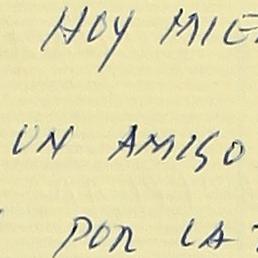 HOY MIE
UN AMIGO
POR LA